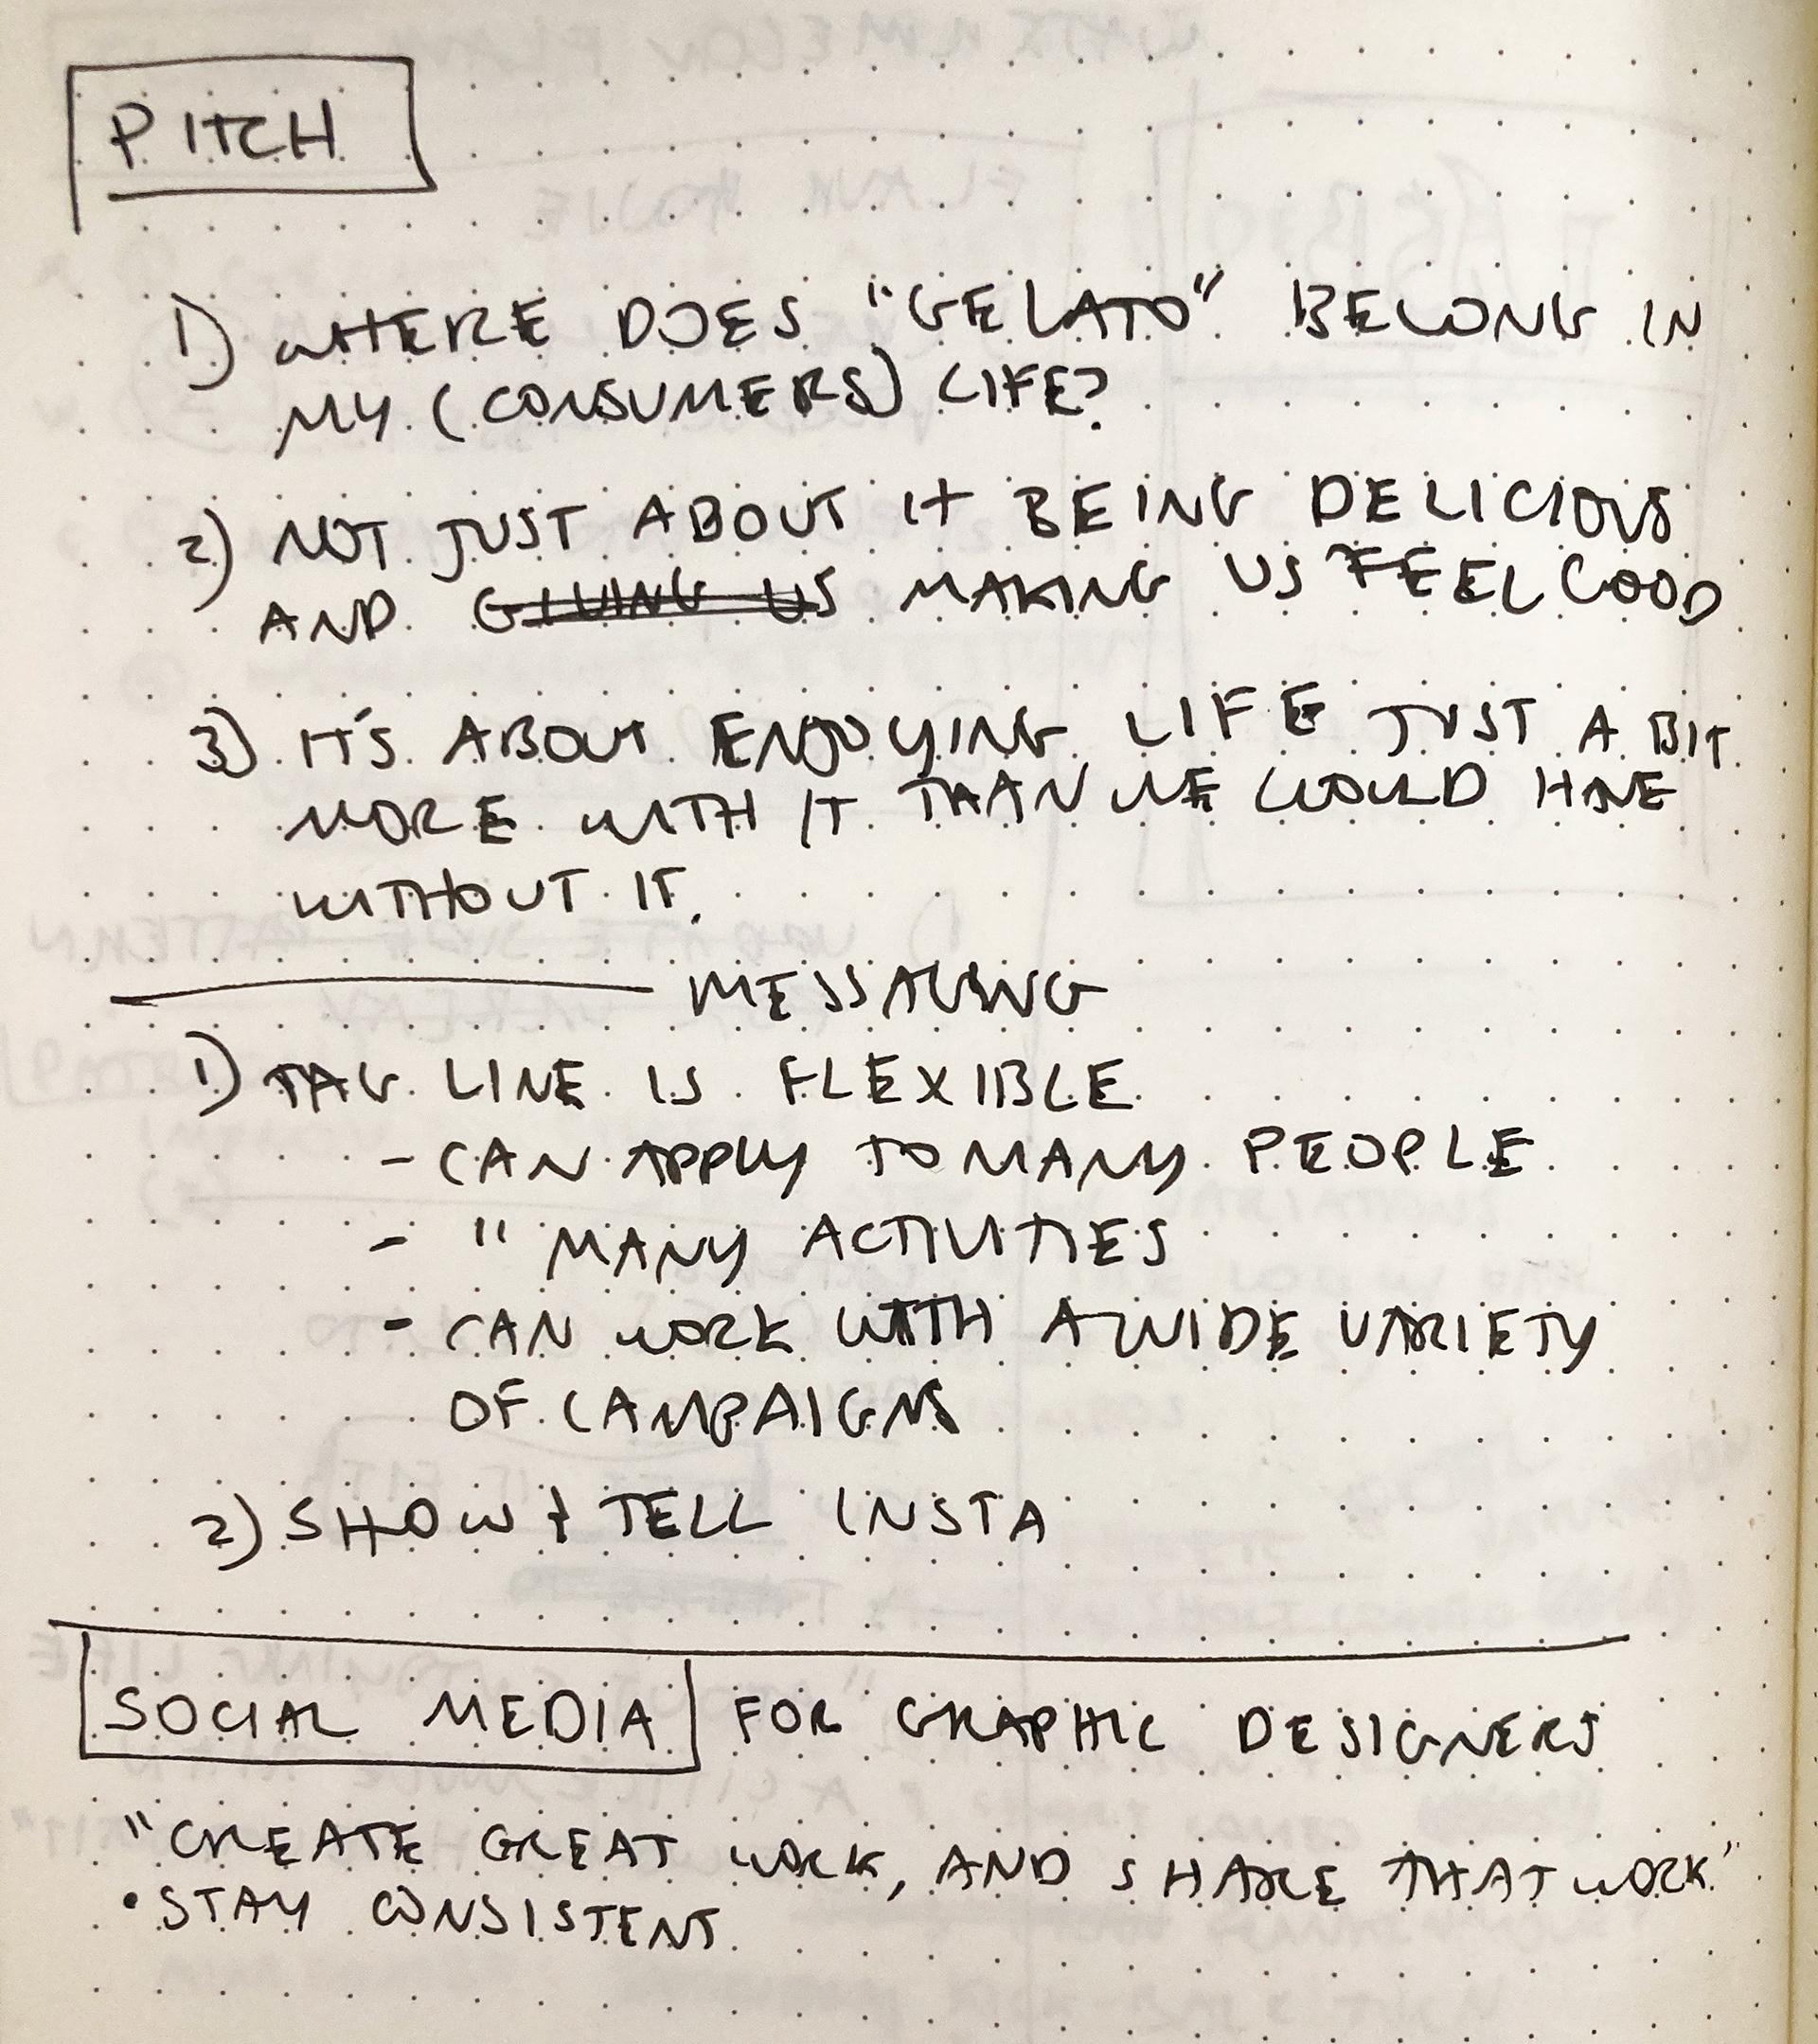 PITCH
1) WHERE DOES "GELATO" BELONG IN
MY (CONSUMERS) LIFE?
2) NOT JUST ABOUT IT BEING DELICIOUS
AND GIVING US MAKING US FEEL GOOD
3) IT'S ABOUT ENJOYING LIFE JUST A BIT
MORE WITH IT THAN WE WOULD HAVE
WITHOUT IT.
MESSAGING
1) TAG LINE IS FLEXIBLE
- CAN APPLY TO MANY PEOPLE
- " MANY ACTIVITIES
- CAN WORK WITH A WIDE VARIETY
OF CAMPAIGNS
2) SHOW & TELL INSTA
SOCIAL MEDIA FOR GRAPHIC DESIGNERS
"CREATE GREAT WORK, AND SHARE THAT WORK"
• STAY CONSISTENT